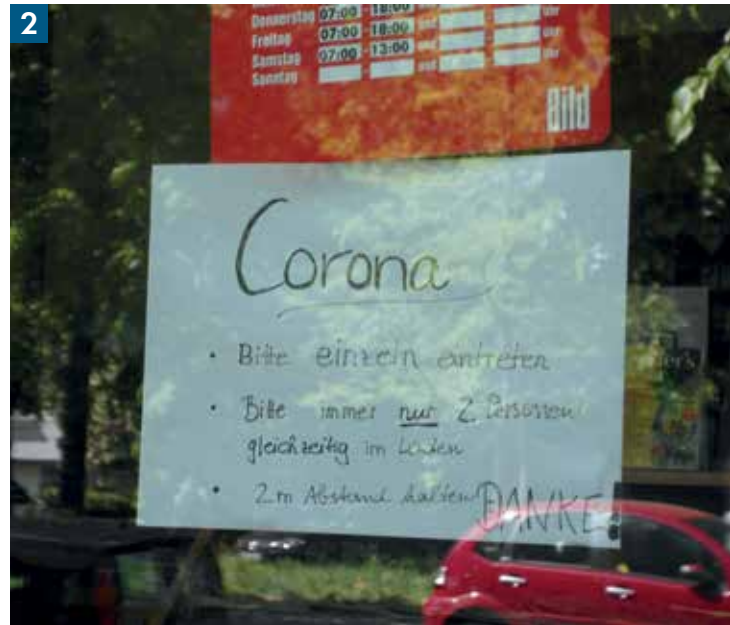 2
Donnerstag 07:00 - 18:00 und Uhr
Freitag 07:00 - 18:00 und Uhr
Samstag 07:00 - 13:00 und Uhr
Sonntag und Uhr
Bild
Corona
• Bitte einzeln eintreten
• Bitte immer nur 2 Personen
gleichzeitig im Laden
• 2m Abstand halten DANKE!